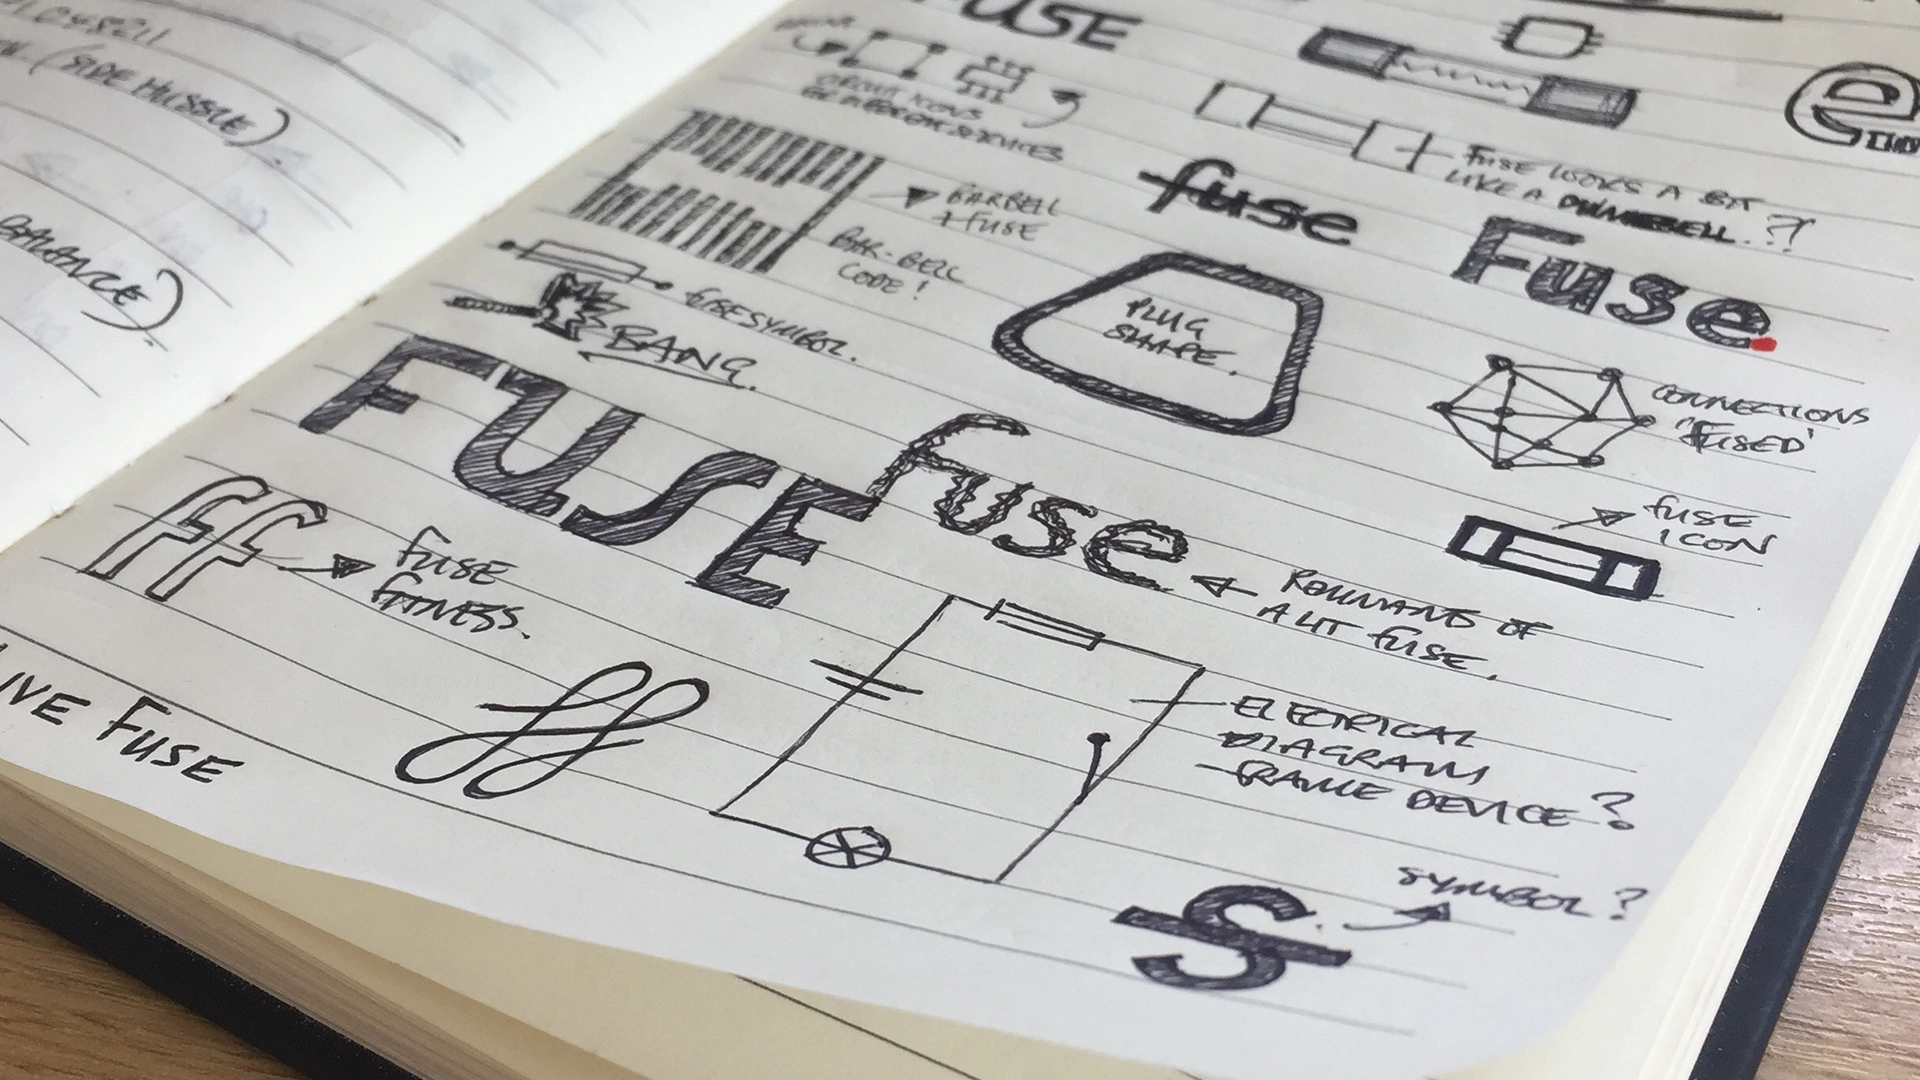 (SIDE HUSSLE)
BALANCE)
FUSE
CIRCUIT ICONS
e
FUSE LOOKS A BIT
LIKE A DUMBELL.??
BARBELL
+ FUSE
BAR-BELL
CODE!
fuse
Fuse.
FUSE SYMBOL.
BANG.
PLUG
SHAPE.
CONNECTIONS
'FUSED'
FUSE
fuse
FUSE
ICON
ff
FUSE
FITNESS.
OF
A LIT FUSE.
LIVE FUSE
ff
ELECTRICAL
DIAGRAM
DEVICE?
S
SYMBOL?